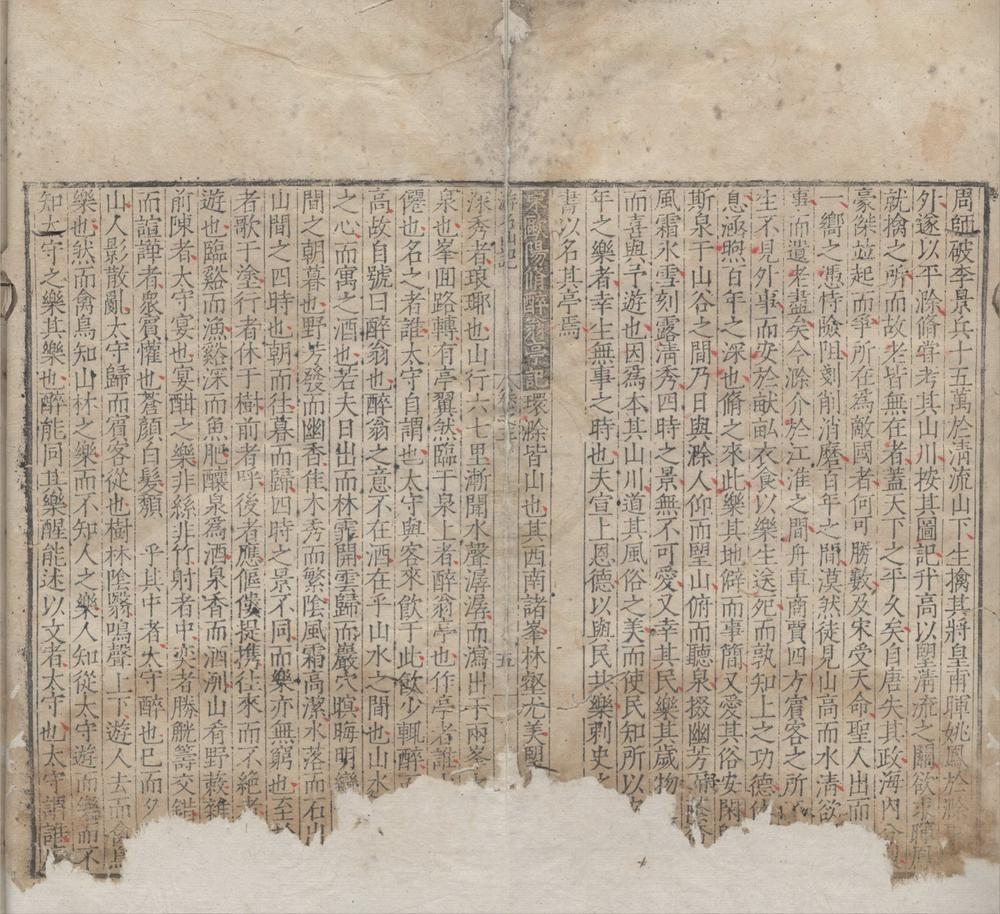 周師破李景兵十五萬於淸流山下生擒其將皇甫暉姚鳳於滁
外遂以平滁脩甞考其山川按其圖記升高以望淸流之關欲求暉鳳
就擒之所而故老皆無在者蓋天下之平久矣自唐失其政海內分
豪傑並起而爭所在爲敵國者何可勝數及宋受天命聖人出而
嚮之憑恃險阻剗削消磨百年之間漠然徒見山高而水淸欲
事而遺老盡矣今滁介於江淮之間舟車商賈四方賓客之所
生不見外事而安於畎畝衣食以樂生送死而孰知上之功德休
息涵煦百年之深也脩之來此樂其地僻而事簡又愛其俗安閑
斯泉于山谷之間乃日與滁人仰而望山俯而聽泉掇幽芳而蔭喬
風霜氷雪刻露淸秀四時之景無不可愛又幸其民樂其歲物
而喜與予遊也因爲本其山川道其風俗之美而使民知所以安
年之樂者幸生無事之時也夫宣上恩德以與民共樂刺史之
書以名其亭焉
宋歐陽脩醉翁亭記環滁皆山也其西南諸峯林壑尤美望
游名山記 五
深秀者琅琊也山行六七里漸聞水聲潺潺而瀉出于兩峯
泉也峯回路轉有亭翼然臨于泉上者醉翁亭也作亭者誰
僊也名之者誰太守自謂也太守與客來飮于此飮少輒醉
高故自號曰醉翁也醉翁之意不在酒在乎山水之間也山水
之心而寓之酒也若夫日出而林霏開雲歸而巖穴暝晦明變
間之朝暮也野芳發而幽香佳木秀而繁陰風霜高潔水落而石
山間之四時也朝而往暮而歸四時之景不同而樂亦無窮也至於
者歌于塗行者休于樹前者呼後者應傴僂提携往來而不絶者
遊也臨谿而漁谿深而魚肥釀泉爲酒泉香而酒洌山肴野蔌雜
前陳者太守宴也宴酣之樂非絲非竹射者中奕者勝觥籌交錯
而諠譁者衆賓懽也蒼顏白髮頽 乎其中者太守醉也已而夕
山人影散亂太守歸而賓客從也樹林陰翳鳴聲上下遊人去而禽鳥
樂也然而禽鳥知山林之樂而不知人之樂人知從太守遊而樂而不
知太守之樂其樂也醉能同其樂醒能述以文者太守也太守謂誰